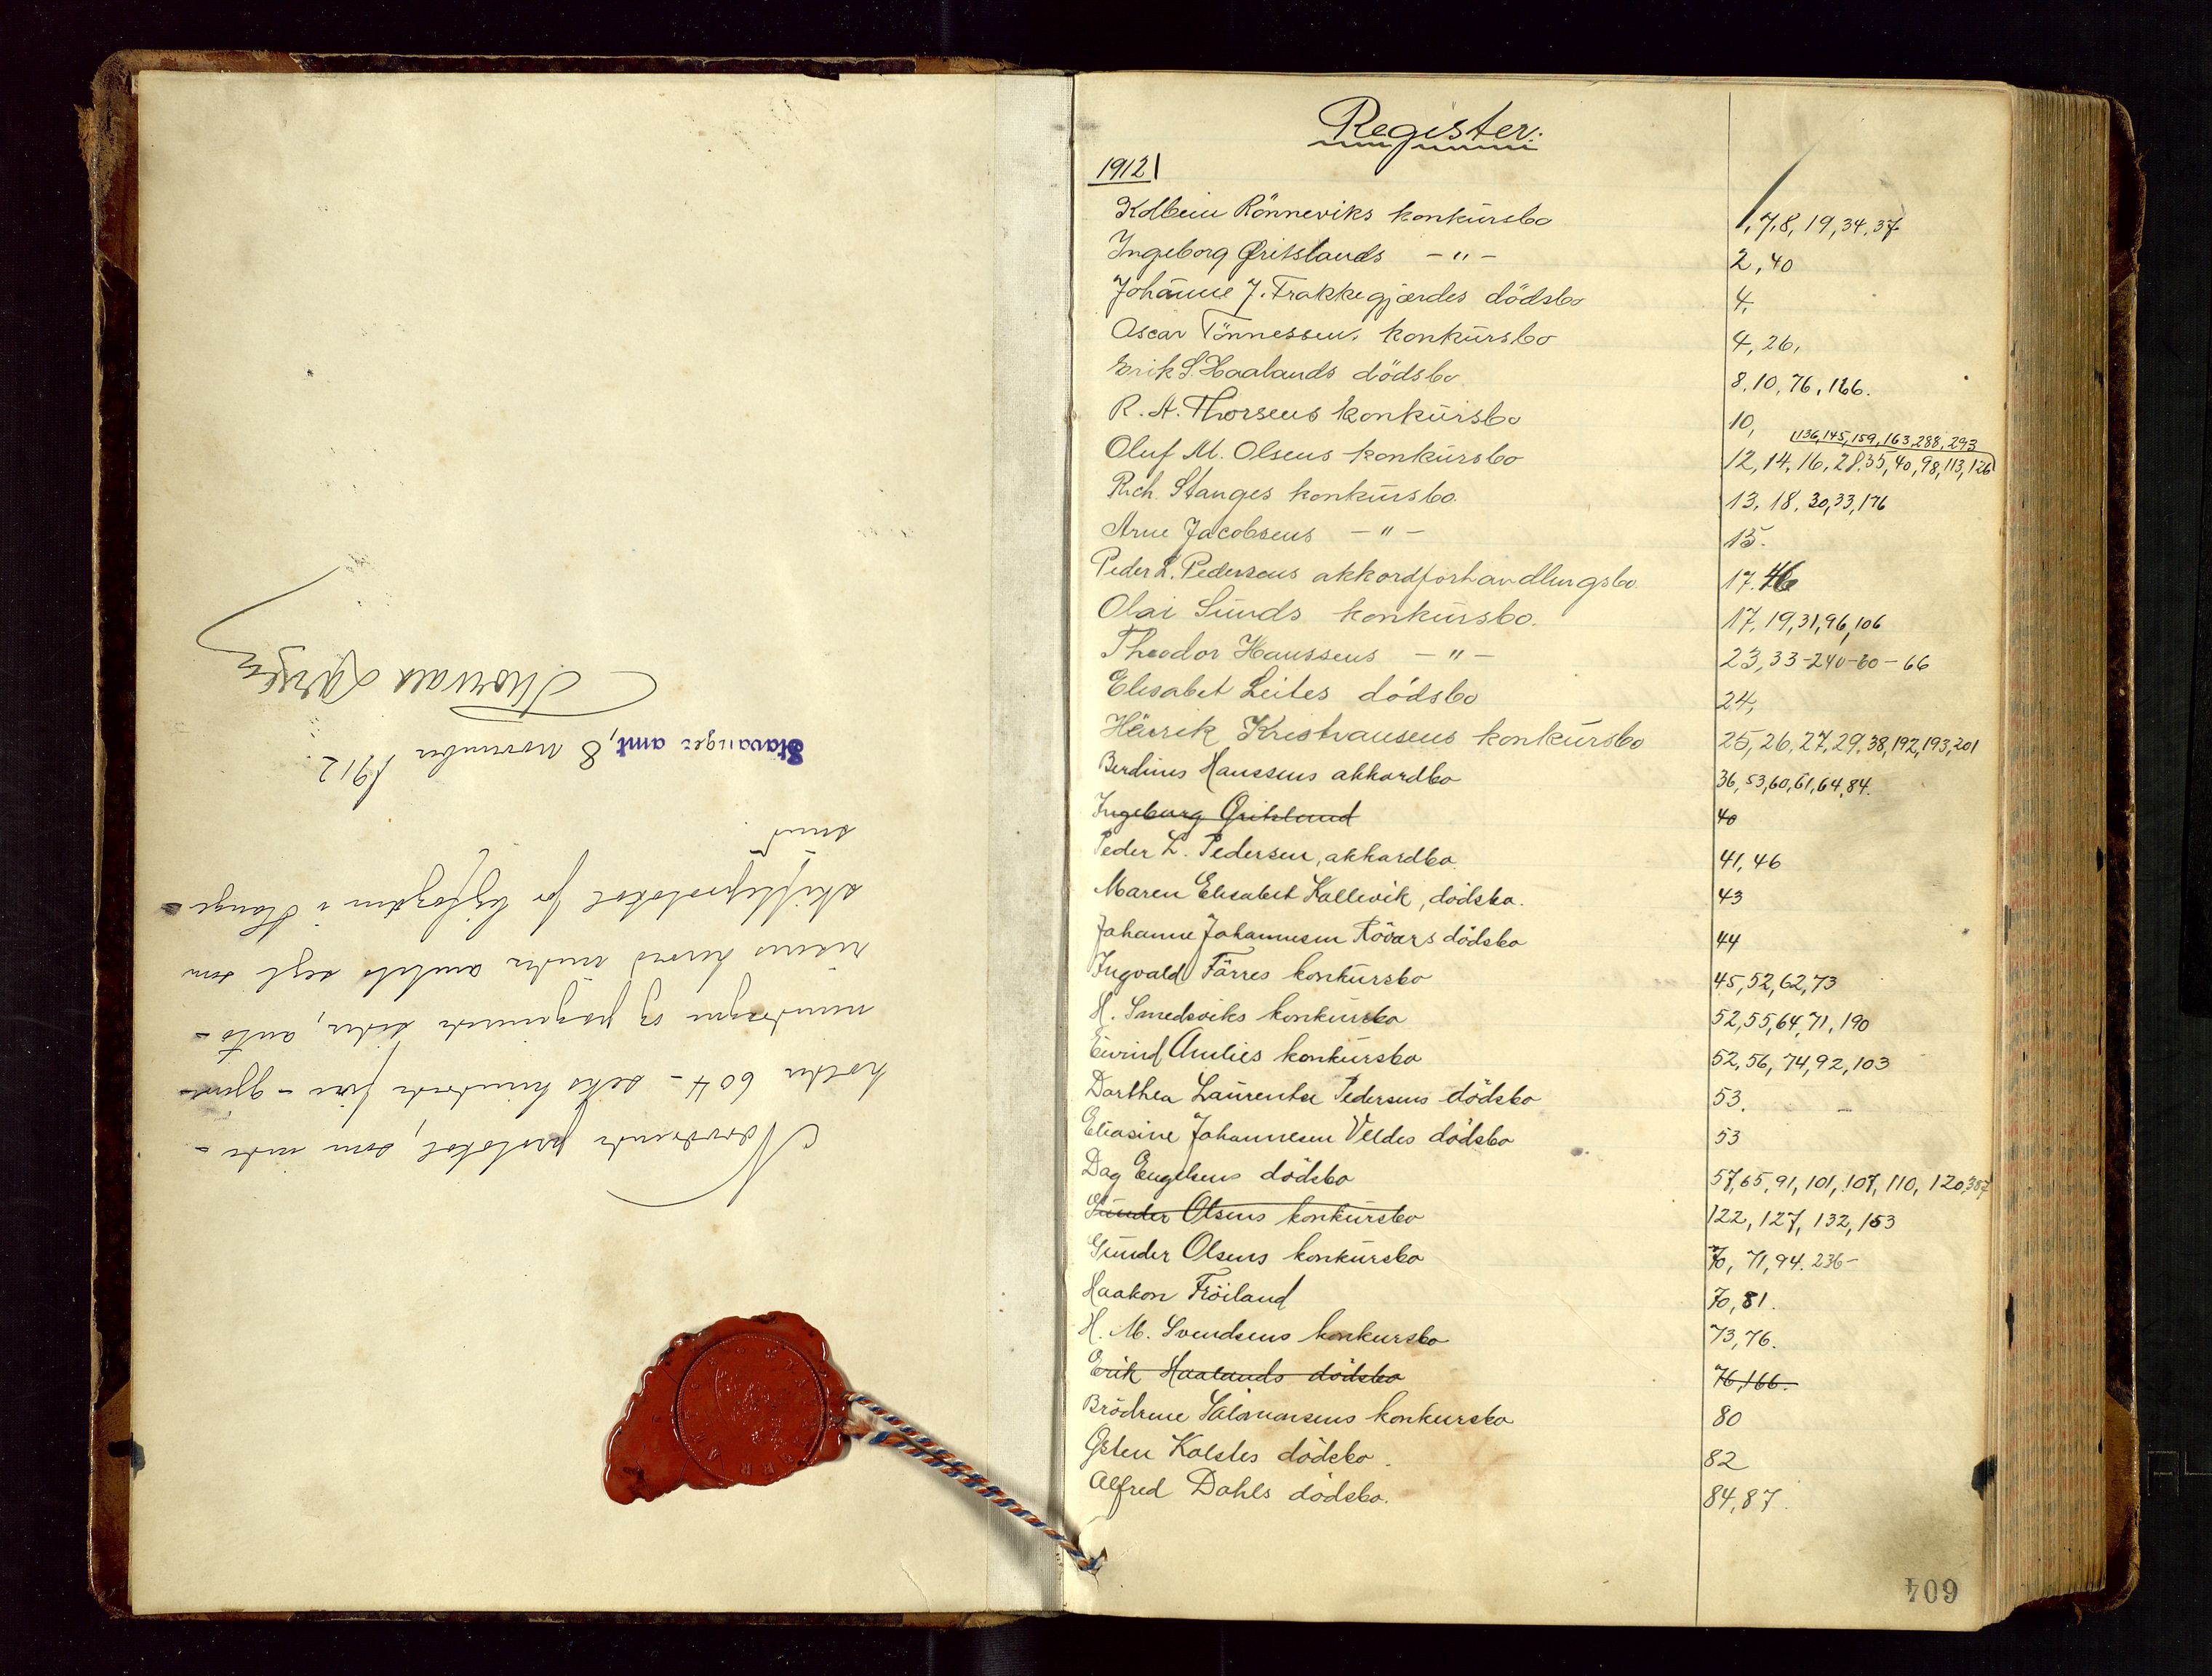 Nærværende protokol, som inde-
holder 604 - seks hundrede fire - gjen-
nemdragne og paginerede sider, auto-
riseres herved under amtets segl som
skifteprotokol for byfogden i Hauge-
sund.
Stavanger amt, 8 november 1912.
Thorvald Larsen
Register:
1912
Kolbein Rönneviks konkursbo 1, 7, 8, 19, 34, 37
Ingeborg Gritslands -"- 2, 40
Johanne J. Frakkegjærdes dödsbo 4,
Oscar Tönnessens konkursbo 4, 26,
Erik S. Haalands dödsbo 8, 10, 76, 166.
R. A. Thorsens konkursbo 10,
136, 145, 159, 163, 288, 293
Oluf M. Olsens konkursbo 12, 14, 16, 28, 35, 40, 98, 113, 126
Rich. Stanges konkursbo. 13, 18, 30, 33, 176
Arne Jacobsens -"- 15.
Peder L. Pedersens akkordforhandlingsbo. 17. 46
Olai Sunds konkursbo. 17, 19, 31, 96, 106
Theodor Hanssens -"- 23, 33-240-60-66
Elisabet Leites dödsbo 24,
Henrik Kristiansens konkursbo 25, 26, 27, 29, 38, 192, 193, 201
Berdines Hanssens akkordbo 36, 53, 60, 61, 64, 84.
Ingeborg Gritsland 40
Peder L. Pedersen, akkordbo 41, 46
Maren Elisabet Kallevik, dödsbo. 43
Johanne Johannesen Rövärs dödsbo 44
Ingvald Förres konkursbo 45, 52, 62, 73
H. Smedsviks konkursbo 52, 55, 64, 71, 190
Eivind Amlies konkursbo 52, 56, 74, 92, 103
Dorthea Laurentse Pedersens dödsbo 53.
Eliasine Johannesen Veldes dödsbo 53
Dag Engelsens dödsbo 57, 65, 91, 101, 107, 110, 120, 387
Gunder Olsens konkursbo 122, 127, 132, 153
Gunder Olsens konkursbo 70, 71, 94. 236-
Haakon Fröiland 70, 81.
H. M. Svendsens konkursbo 73, 76.
Erik Haalands dödsbo 76, 166.
Brödrene Salomonsens konkursbo 80
Östen Kolstes dödsbo. 82
Alfred Dahls dödsbo. 84, 87.
604